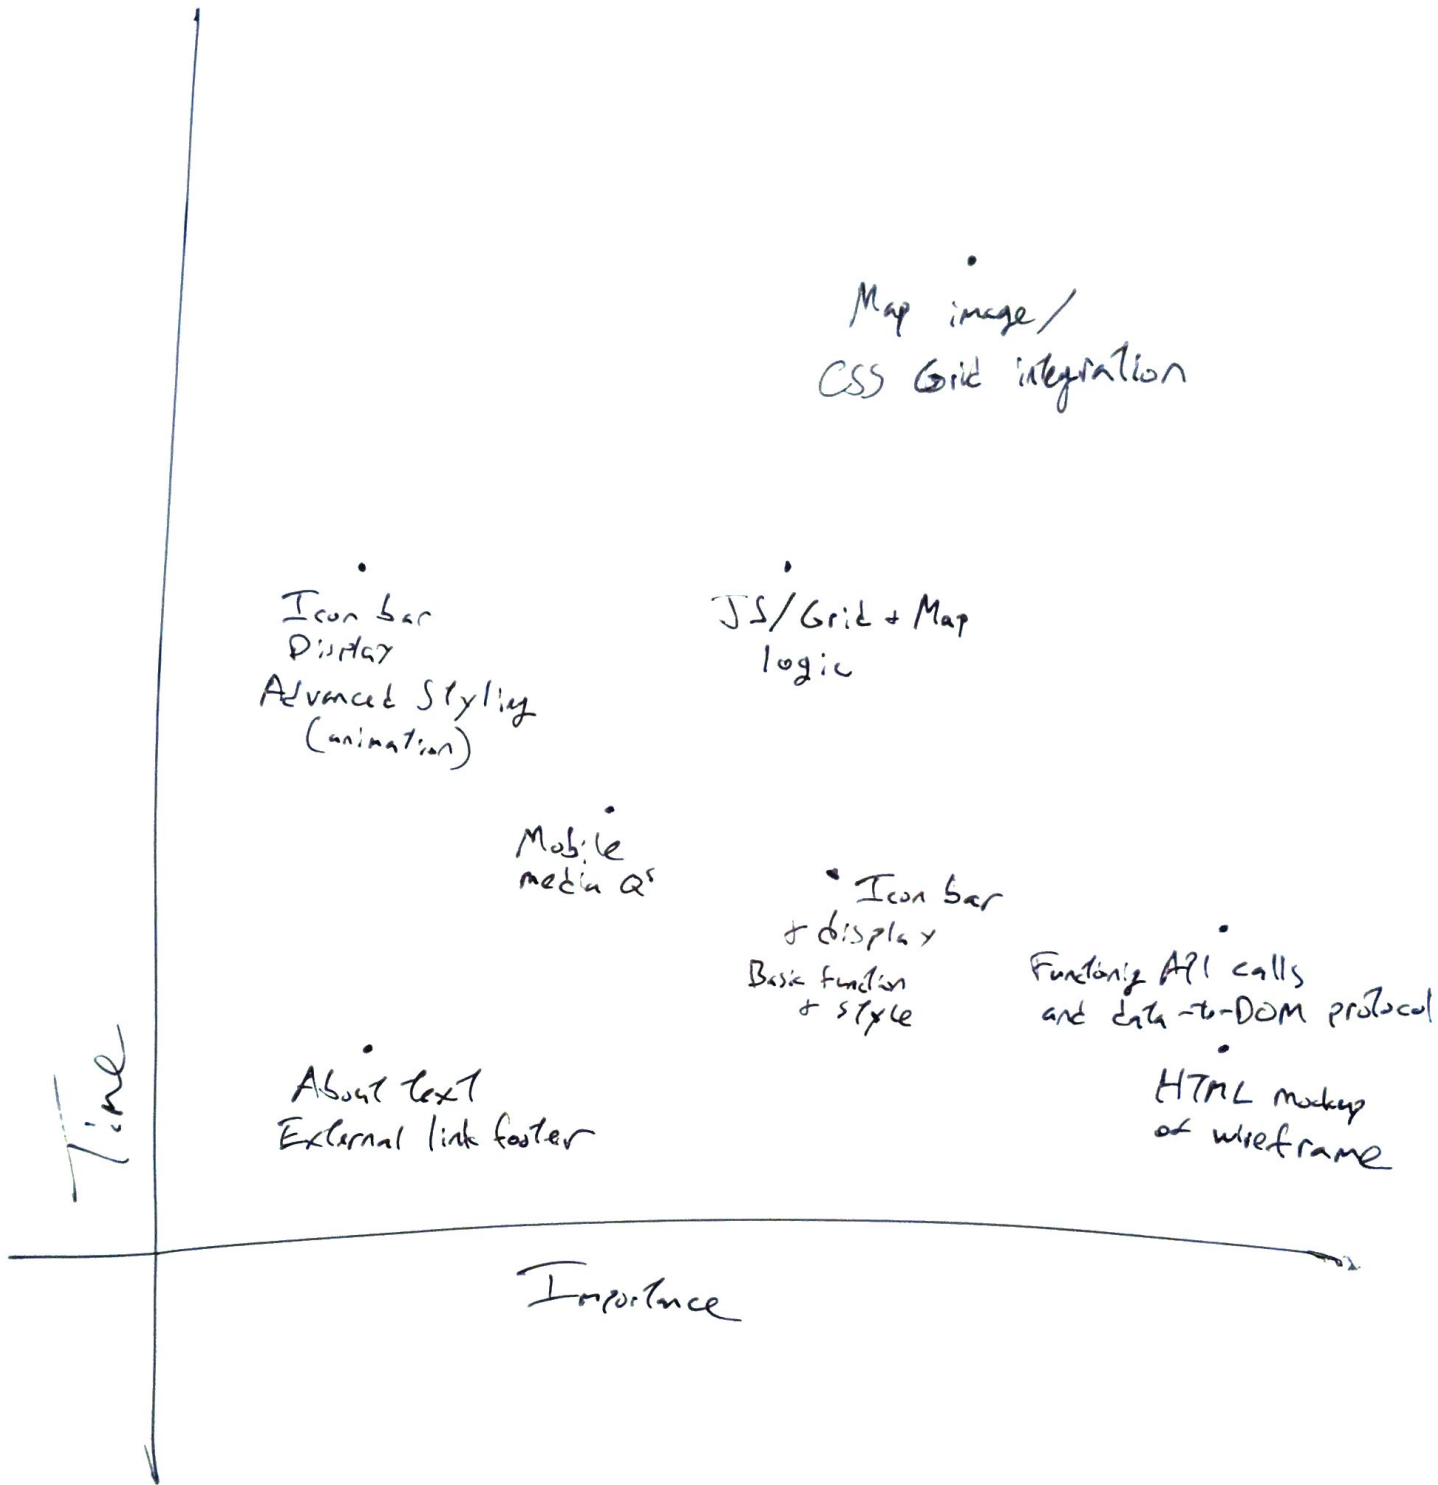 Map image/
CSS Grid integration
Icon bar
Display
Advanced Styling
(animation)
JS/Grid + Map
logic
Mobile
media Qs
Icon bar
+ display
Basic function
+ style
Functioning API calls
and data-to-DOM protocol
About text
External link footer
HTML mockup
of wireframe
Time
Importance